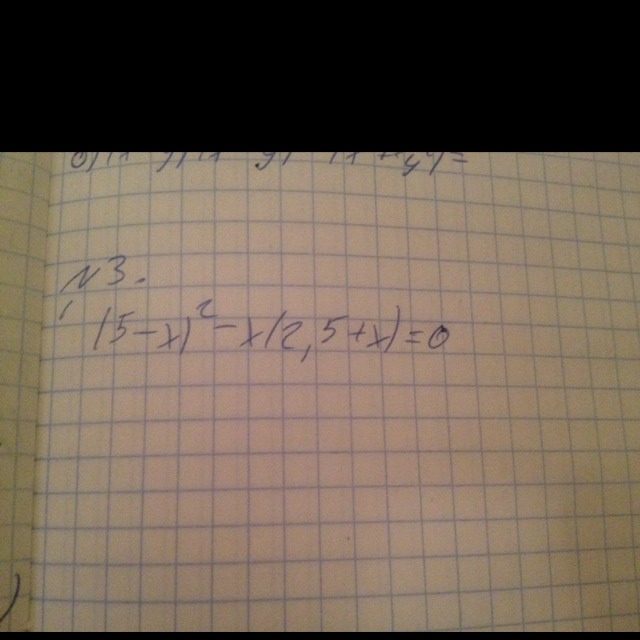 N 3.
(5-x)² - x(2,5+x)=0